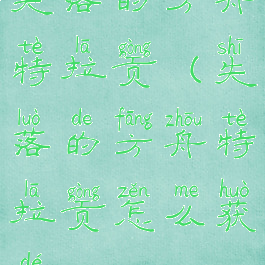 失落的方舟
tè lā gòng shī
特拉贡（失
luò de fāng zhōu tè
落的方舟特
lā gòng zěn me huò
拉贡怎么获
dé